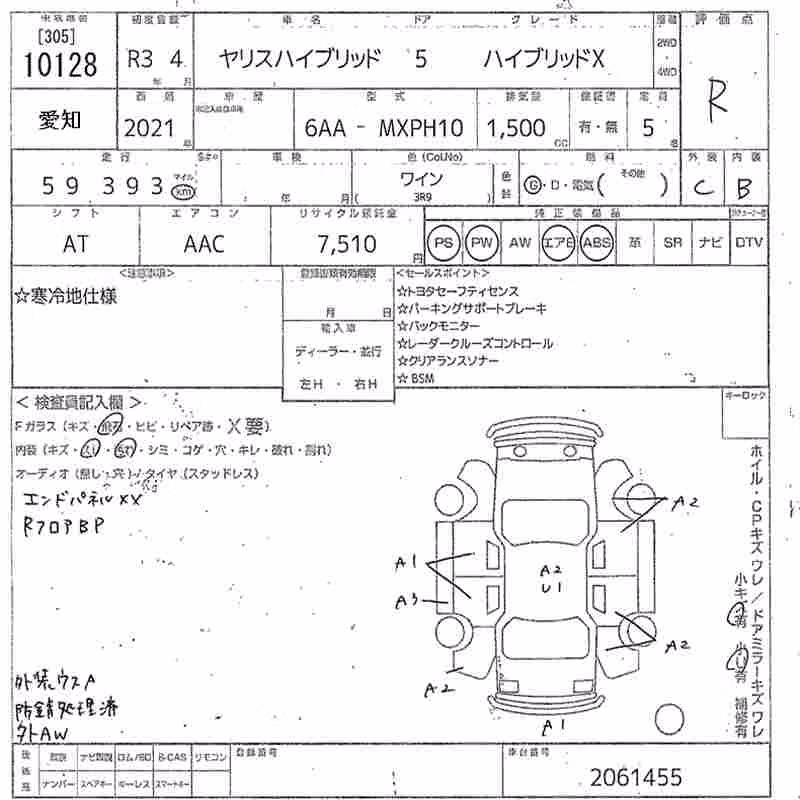 [305]
10128
初度登録 車名 ドア グレード 評価点
R3 4 ヤリスハイブリッド 5 ハイブリッドX
2WD
4WD
年 月
R
愛知
西暦 車歴 型式 排気量 保証書 定員
2021 6AA - MXPH10 1,500 有・無 5
年 CC 名
走行 車検 色(Col.No) 燃料 その他 外装 内装
59 393 マイル km 年 月 ワイン 3R9 色替 G・D・電気( ) C B
シフト エアコン リサイクル預託金 純正装備品
AT AAC 7,510 円 PS PW AW エアB ABS 革 SR ナビ DTV
<注意事項> <セールスポイント>
☆寒冷地仕様
月 日
輸入車
ディーラー・並行
左H ・ 右H
☆トヨタセーフティセンス
☆パーキングサポートブレーキ
☆バックモニター
☆レーダークルーズコントロール
☆クリアランスソナー
☆BSM
キーロック
<検査員記入欄>
Fガラス(キズ・飛石・ヒビ・リペア跡・X要)
内装(キズ・スレ・汚れ・シミ・コゲ・穴・キレ・破れ・割れ)
オーディオ(無し・穴)/タイヤ(スタッドレス)
エンドパネルXX
RフロアBP
A2
A1
A3
A2
U1
A2
A2
A1
ホイル・CPキズワレ/ドアミラーキズワレ
小キズ有 小U有 補修有
外装ウスA
防錆処理済
外AW
後 ナビ B-CAS リモコン 登録番号 車台番号
ナンバー スペアキー キーレス スマートキー
2061455